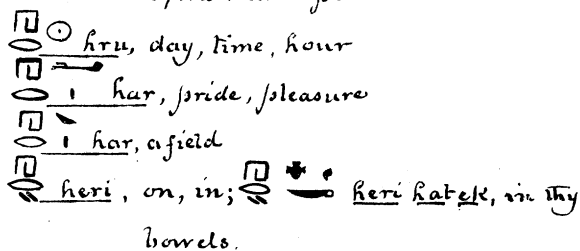 hru, day, time, hour
har, pride, pleasure
har, afield
heri, on, in; heri hatek, in thy
bowels.